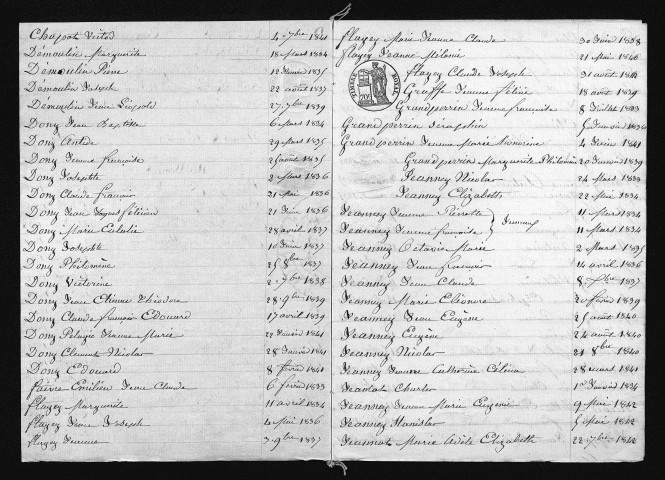 Chapot Victor 4 7bre 1840
Démoulin Marguerite 18 Mars 1834
Démoulin Pierre 12 Janvier 1835
Demoulin Joseph 22 août 1837
Démoulin Jean Léopole 27 7bre 1839
Dony Jean Baptiste 6 Mars 1834
Dony Antide 29 Mars 1835
Dony Jeanne françoise 25 août 1835
Dony Josephte 2 Mars 1836
Dony Claude francois 21 Mai 1836
Dony Jean félicien 21 Juin 1836
Dony Marie Eulalie 28 avril 1837
Dony Josephte 10 Juin 1837
Dony Philomène 25 8bre 1837
Dony Victorine 2 7bre 1838
Dony Jean Etienne Théodore 28 9bre 1839
Dony Claude françois Edouard 17 avril 1839
Dony Pélagie Jeanne Marie 22 Janvier 1841
Dony Clement Nicolas 28 Janvier 1841
Dony Edouard 8 février 1841
faivre Emilien Jean Claude 6 février 1833
flagey Marguerite 11 avril 1834
flagey Jean Joseph 4 Mai 1836
flagey Jeanne 3 9bre 1837
flagey Marie Jeanne Claude 30 Juin 1838
flagey Jeanne Mélanie 21 Mai 1840
flagey Claude Joseph 31 août 1841
Graff Jeanne félicie 18 août 1839
Grandperrin Jeanne françoise 8 Juillet 1833
Grandperrin Séraphin 5 Janvier 1836
Grandperrin Jeanne Marie Honorine 4 Juin 1841
Grandperrin Marguerite Philomène 20 Janvier 1839
Jeanney Nicolas 24 Mars 1833
Jeanney Elizabeth 22 Mai 1834
Jeanney Jeanne Pierrette 11 Mars 1834
Jeanney Jeanne françoise } Jumeaux 11 Mars 1834
Jeanney Octavie Marie 2 Mars 1835
Jeanney Jean francois 14 avril 1836
Jeanney Jean Claude 8 1837
Jeanney Marie Eléonore 20 février 1839
Jeanney Jean Eugène 25 août 1840
Jeanney Eugène 24 août 1840
Jeanney Nicolas 21 8bre 1840
Jeanney Jeanne Catherine Célina 28 mars 1841
Jeannot Charles 1er Janvier 1834
Jeanney Jeanne Marie Eugenie 9 Mai 1842
Jeanney Stanislas 5 Mai 1842
Jeannot Marie Adèle Elizabeth 22 7bre 1842